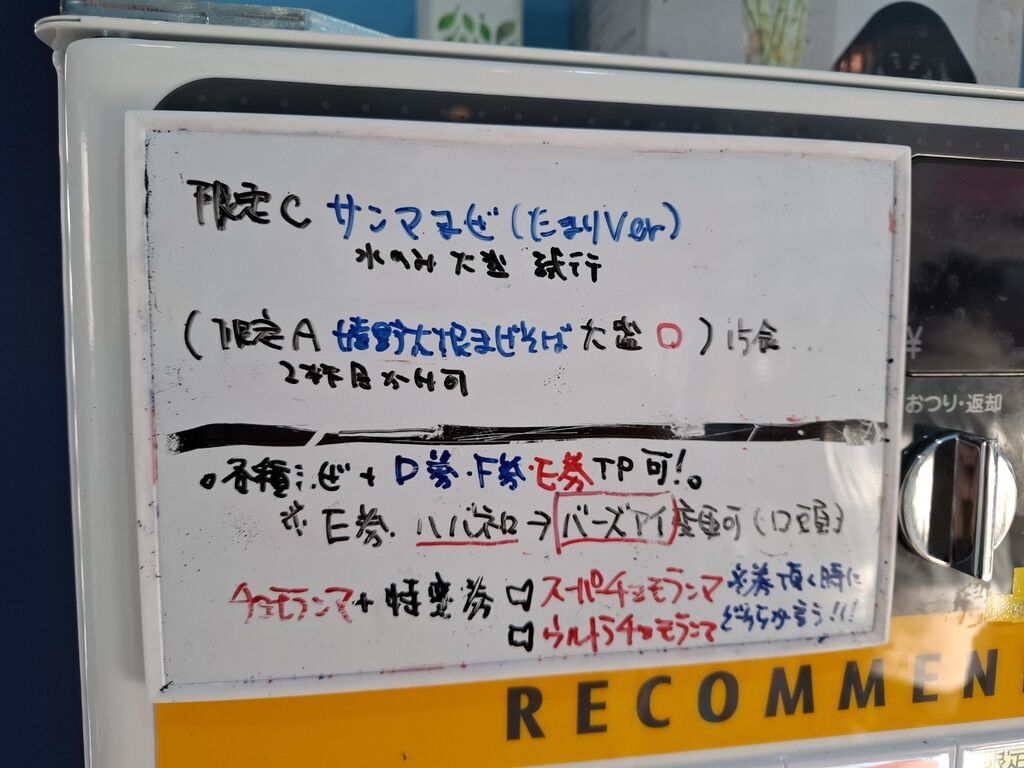 限定C サンマまぜ(たまりVer)
水のみ大盛 試行
(限定A 嬉野大俵まぜそば 大盛 ) 15食
2杯目 可
各種まぜ + D券・F券・E券 TP可!。
※ E券. ハバネロ→バーズアイ変更可(口頭)
チョモランマ + 特変券 □ スーパーチョモランマ ※券頂く時に
□ ウルトラチョモランマ どちらか言う!!!
¥
おつり・返却
RECOMMEN
限定